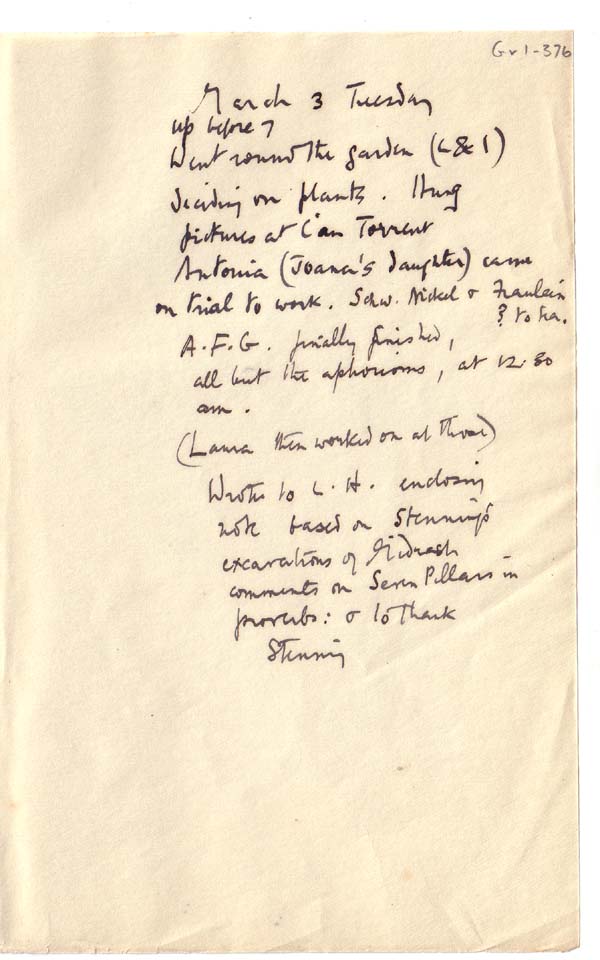 Gv1-376
March 3 Tuesday
up before 7
Went round the garden (L & I)
deciding on plants. Hung
pictures at C'an Torrent
Antonia (Joana's daughter) came
on trial to work. Schw. Nickel & Fraulein
? to tea.
A.F.G. finally finished,
all but the aphorisms, at 12.30
am.
(Laura then worked on at those)
Wrote to L.H. enclosing
note based on Stenning's
excavations of Midrash
comments on Seven Pillars in
proverbs: & to thank
Stenning